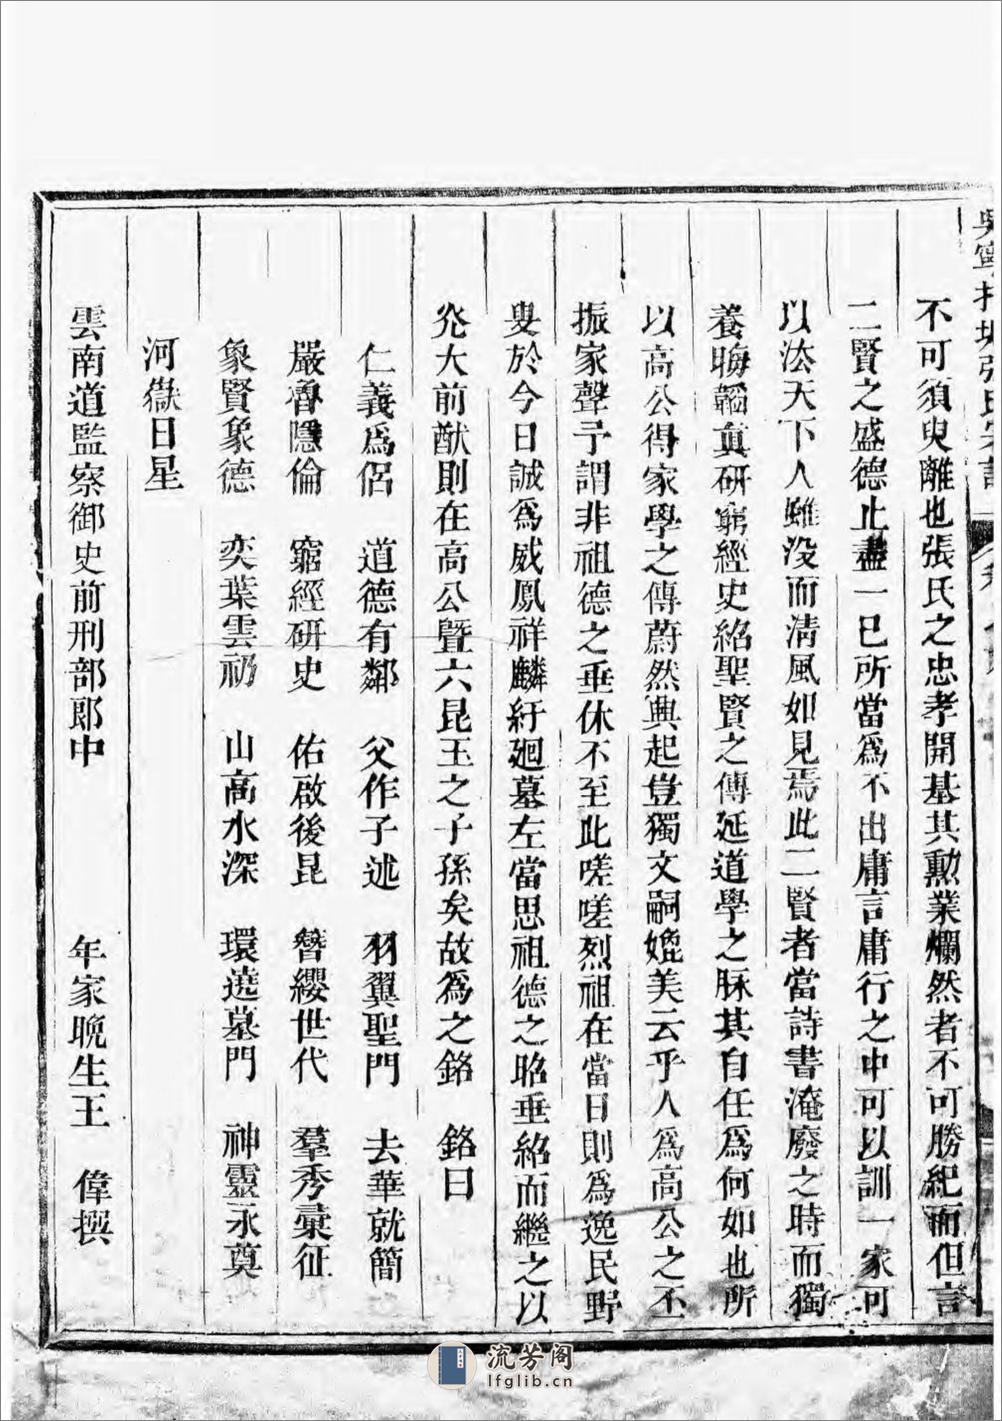 不可須臾離也張氏之忠孝開基其勳業爛然者不可勝紀而但言
二賢之盛德止盡一已所當為不出庸言庸行之中可以訓一家可
以法天下人雖沒而清風如見焉此二賢者當詩書淹廢之時而獨
養晦韜真研窮經史紹聖賢之傳延道學之脉其自任為何如也所
以高公得家學之傳蔚然興起豈獨文嗣媲美云乎人為高公之丕
振家聲予謂非祖德之垂休不至此嗟嗟烈祖在當日則為逸民野
叟於今日誠為威鳳祥麟紆廻墓左當思祖德之昭垂紹而繼之以
光大前猷則在高公暨六昆玉之子孫矣故為之銘　銘曰
仁義為侶　道德有鄰　父作子述　羽翼聖門　去華就簡
嚴魯隱倫　窮經研史　佑啟後昆　簪纓世代　羣秀彙征
象賢象德　奕葉雲礽　山高水深　環遶墓門　神靈永奠
河嶽日星
雲南道監察御史前刑部郎中　年家晚生王　偉撰
流芳阁
lfglib.cn